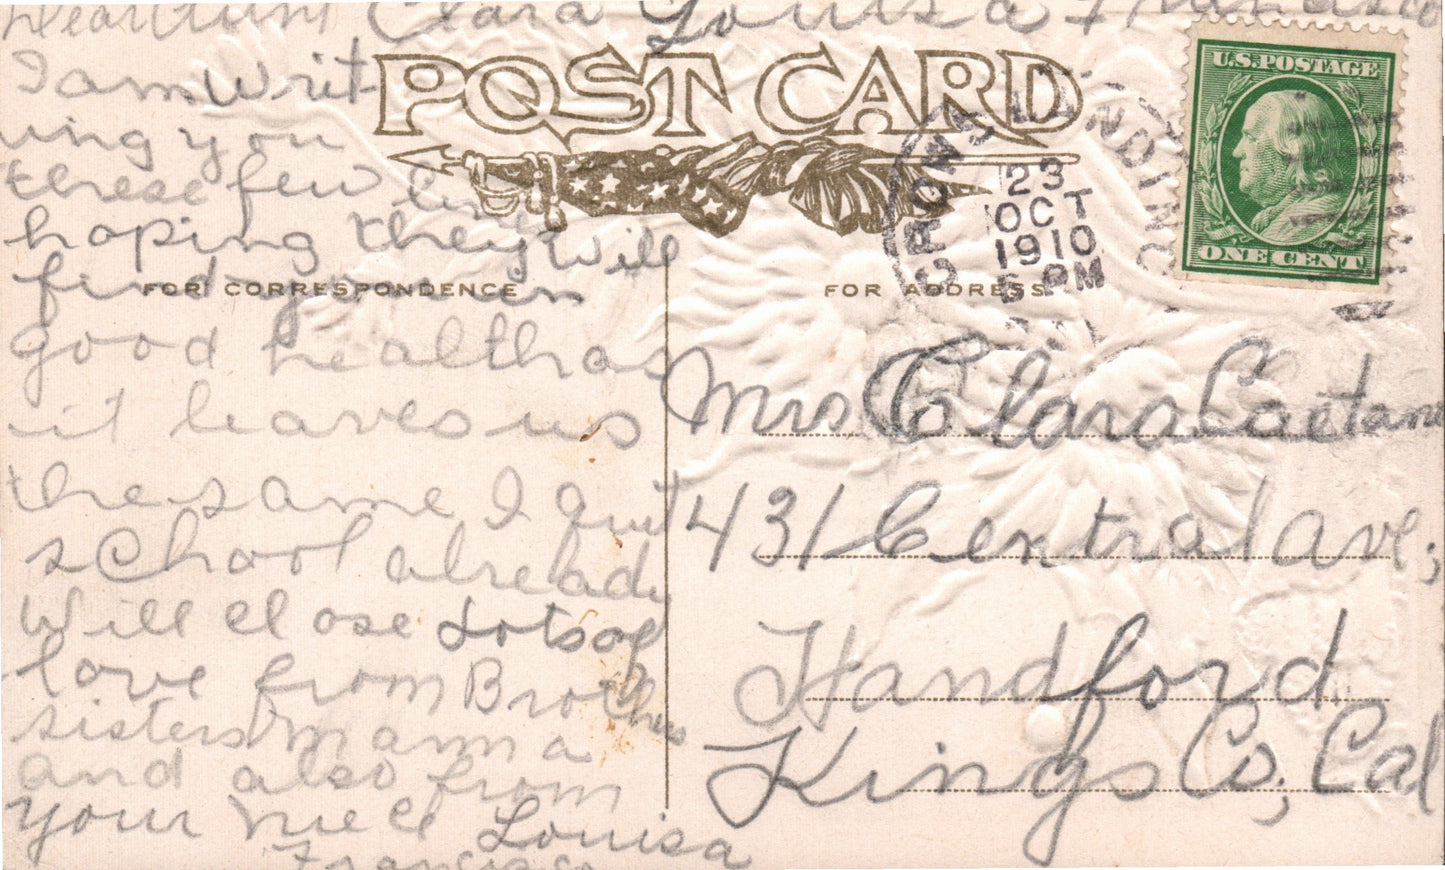 Dear Aunt Clara Louisa Francisco
I am writ-
ing you
these few lines
hoping they will
find you in
good health as
it leaves us
the same I quit
school already
Will close Lots of
love from Brothers
sisters mamma
and also from
your niece Louisa
Francisco
POST CARD
FOR CORRESPONDENCE
FOR ADDRESS
CROWS LANDING
23
OCT
1910
5 PM
U.S. POSTAGE
ONE CENT
Mrs Clara Caetano
431 Central Ave,
Handford
Kings Co, Cal